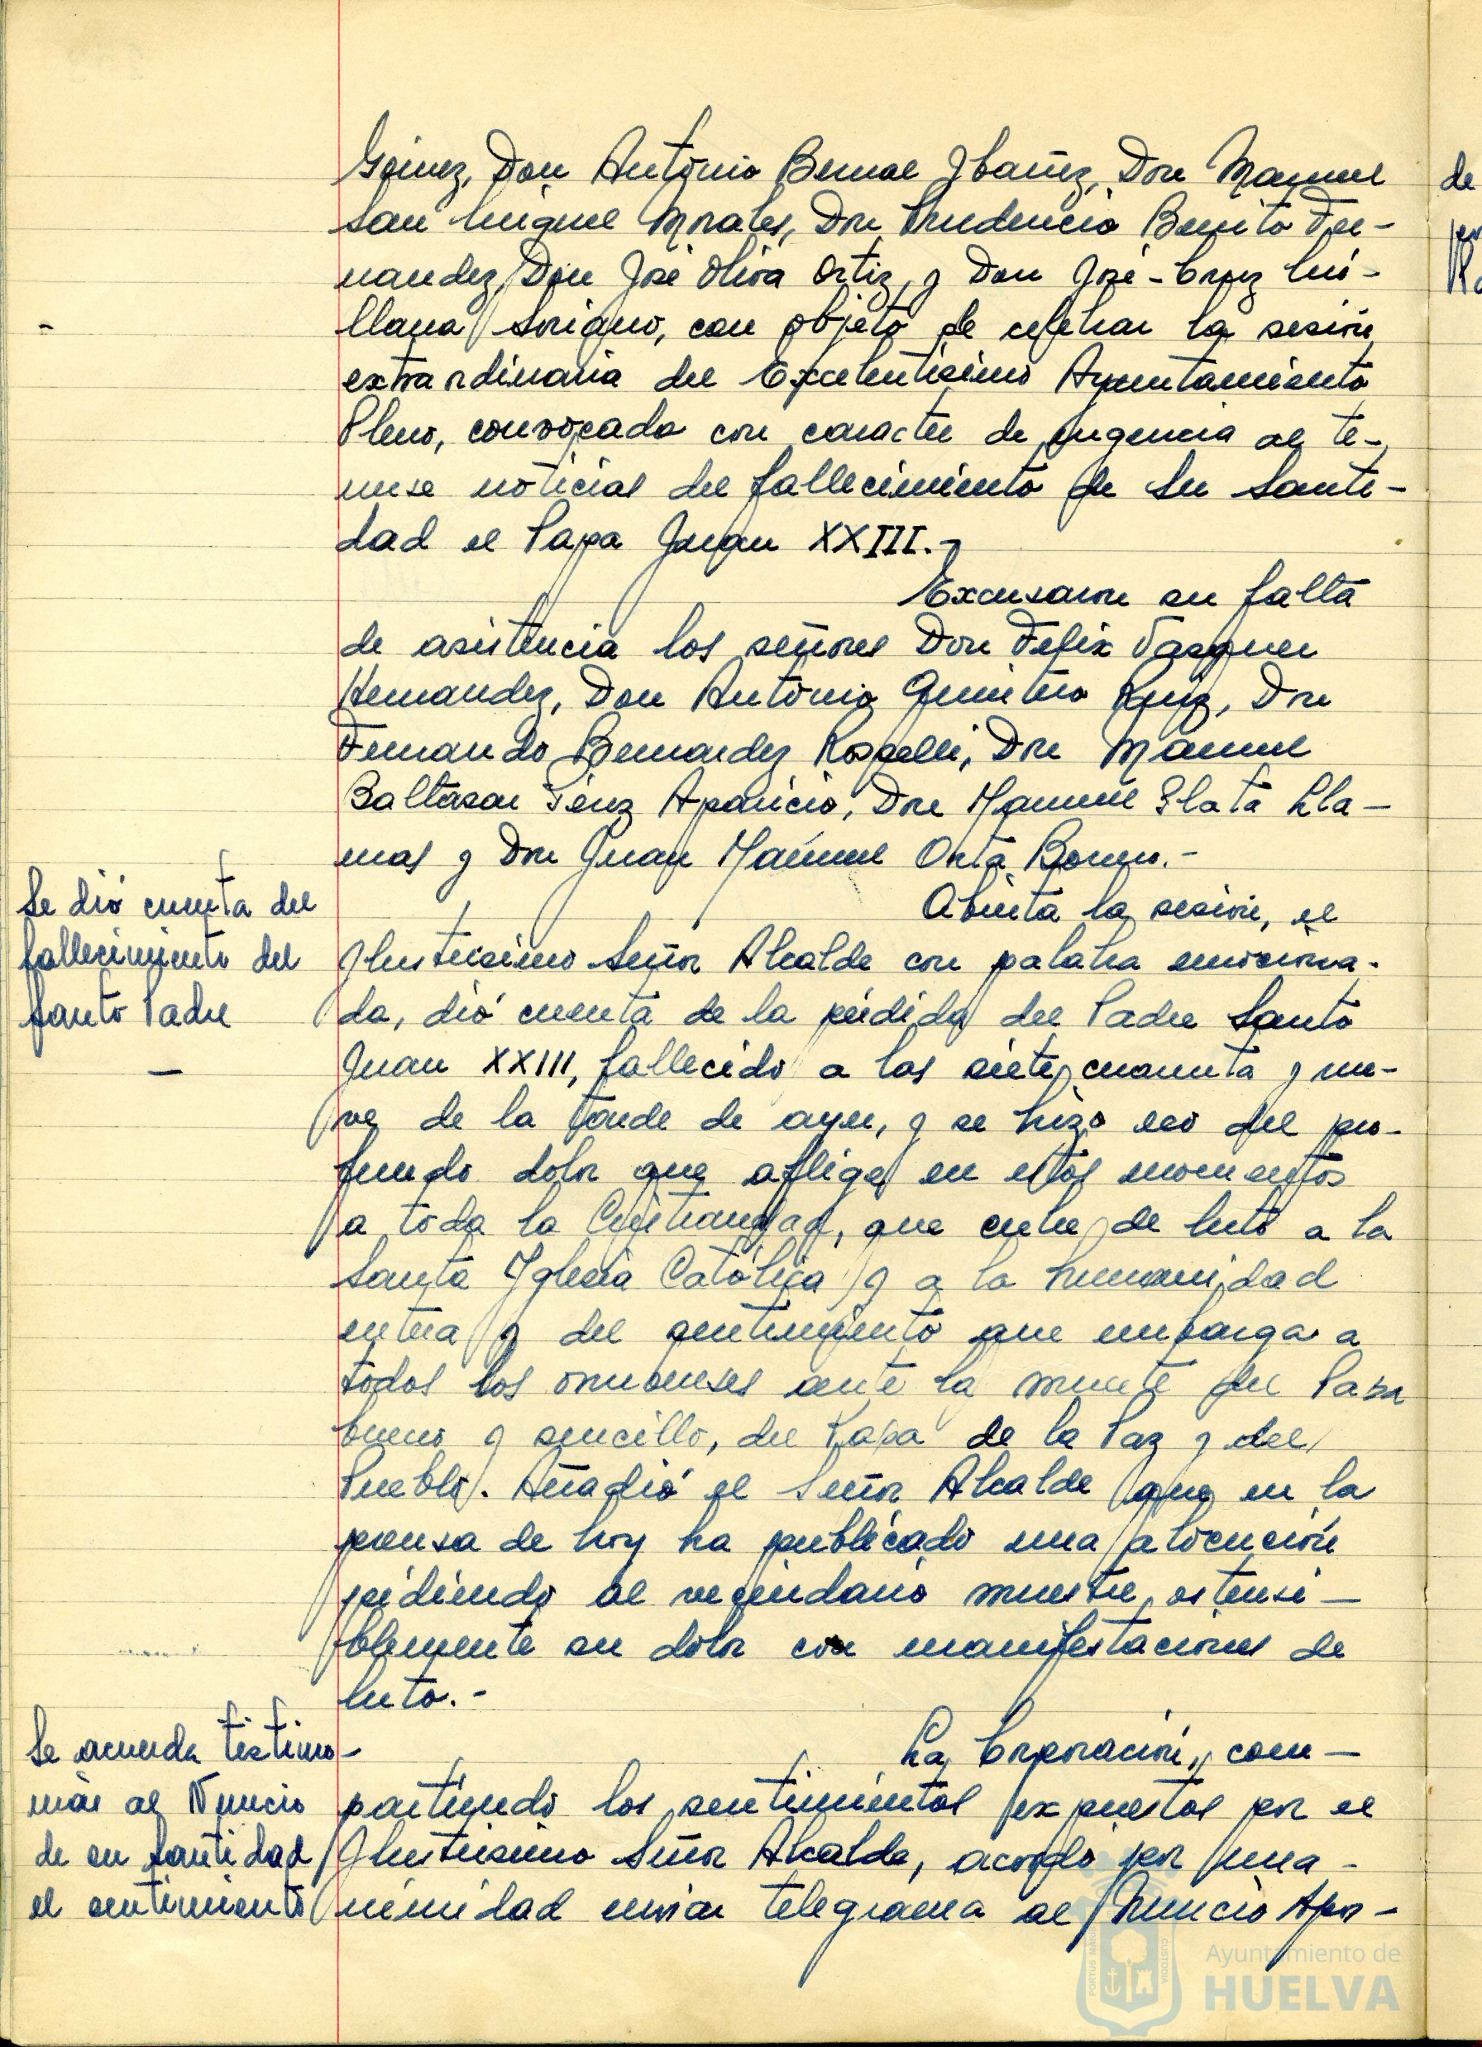 Gómez, Don Antonio Bernal Ibañez, Don Manuel
San Miguel Morales, Don Prudencio Benito Fer-
nandez, Don José Oliva Ortiz, y Don José-Cruz Mi-
llana Soriano, con objeto de celebrar la sesión
extraordinaria del Excelentísimo Ayuntamiento
Pleno, convocada con caracter de urgencia al te-
nerse noticias del fallecimiento de Su Santi-
dad el Papa Juan XXIII.-
Excusaron su falta
de asistencia los señores Don Felix Vazquez
Hernandez, Don Antonio Quintero Ruiz, Don
Fernando Bernardez Rosselli, Don Manuel
Baltasar Pérez Aparicio, Don Manuel Plata Lla-
nas y Don Juan Manuel Orta Borrero.-
Se dió cuenta del
fallecimiento del
Santo Padre
—
Abierta la sesión, el
Ilustrisimo Señor Alcalde con palabra emociona-
da, dió cuenta de la pérdida del Padre Santo
Juan XXIII, fallecido a las siete cuarenta y nue-
ve de la tarde de ayer, y se hizo eco del pro-
fundo dolor que aflige en estos momentos
a toda la Cristiandad, que cubre de luto a la
Santa Iglesia Católica y a la humanidad
entera y del sentimiento que embarga a
todos los onubenses ante la muerte del Papa
bueno y sencillo, del Papa de la Paz y del
Pueblo. Añadió el Señor Alcalde que en la
prensa de hoy ha publicado una alocución
pidiendo al vecindario muestre ostensi-
blemente su dolor con manifestaciones de
luto.-
Se acuerda testimo-
niar al Nuncio
de su Santidad
el sentimiento
La Corporación, com-
partiendo los sentimientos expuestos por el
Ilustrisimo Señor Alcalde, acordó por una-
nimidad enviar telegrama al Nuncio Apos-
de
Ayuntamiento de
HUELVA